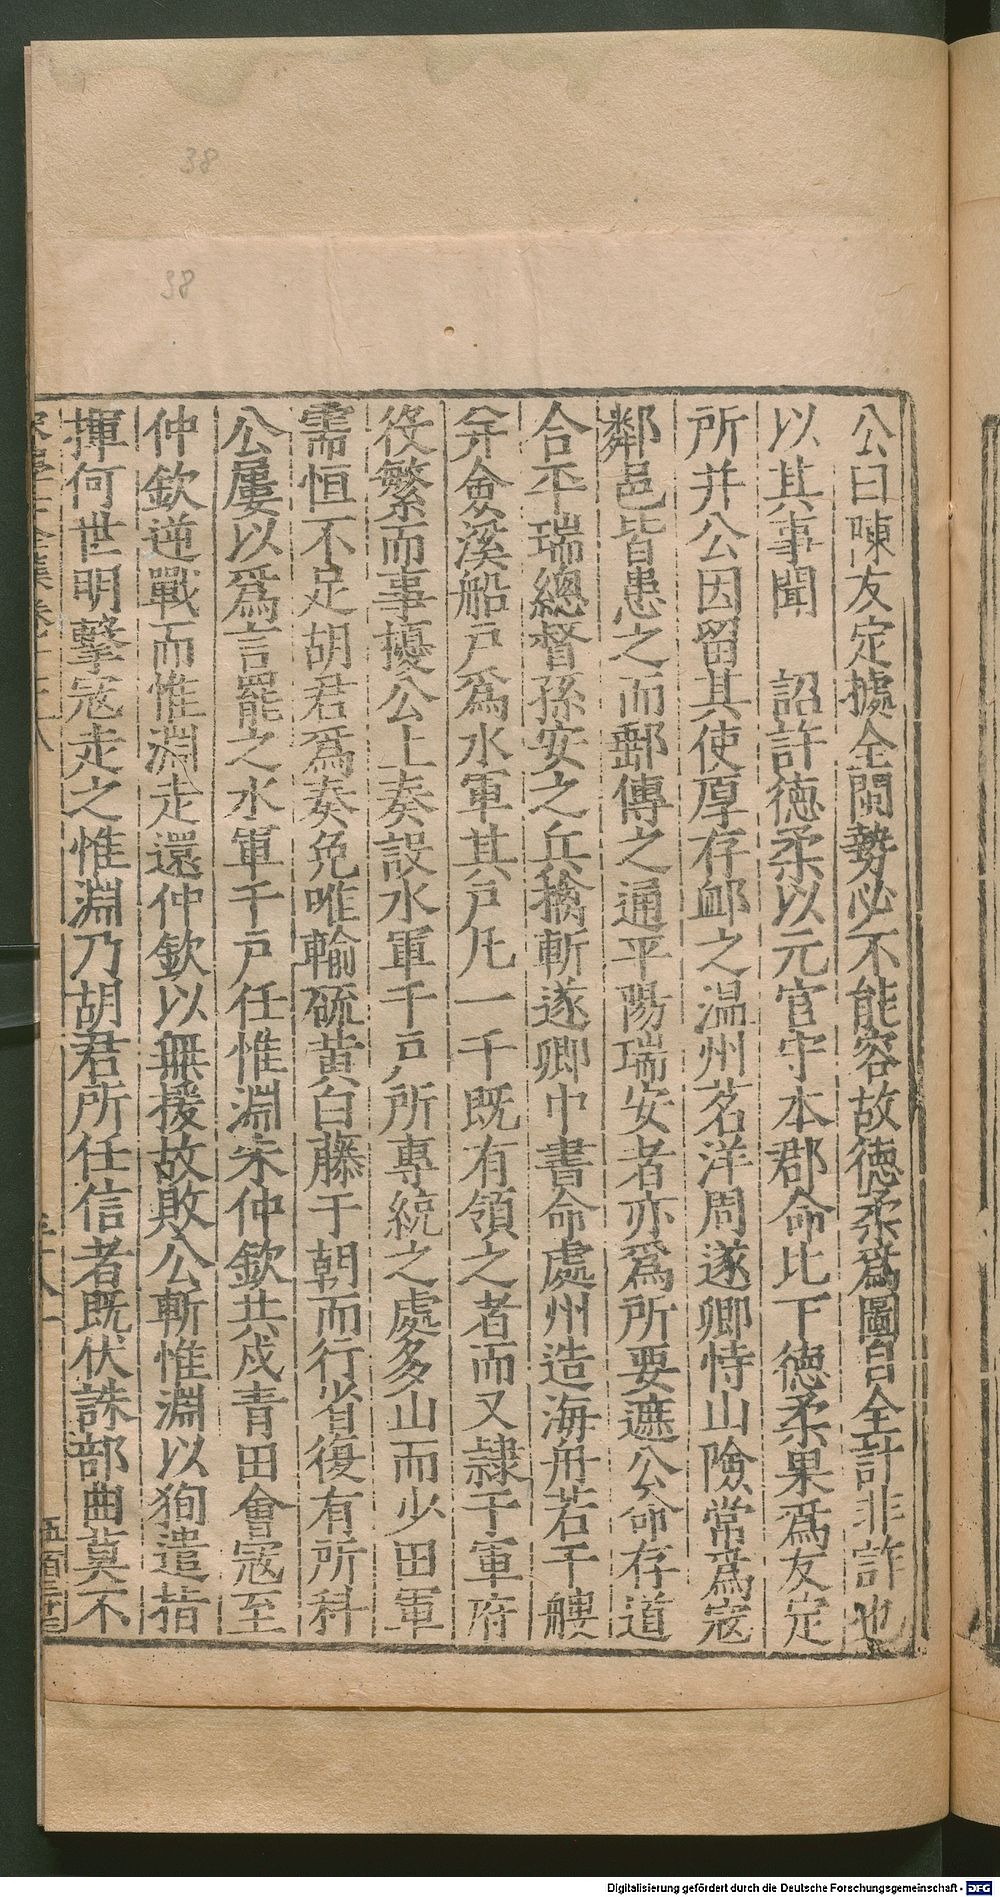 公曰陳友定據全閩勢必不能容故徳柔爲圖自全計非詐也
以其事聞　詔許徳柔以元官守本郡命比下徳柔果爲友定
所并公因留其使厚存卹之温州茗洋周遂卿恃山險常爲寇
鄰邑皆患之而郵傳之通平陽瑞安者亦爲所要遮公命存道
合平瑞總督孫安之兵擒斬遂卿中書命處州造海舟若干艘
公弁僉溪船戸爲水軍其戸凡一千既有領之者而又隷于軍府
役繁而事擾公上奏設水軍千戸所專統之處多山而少田軍
需恒不足胡君爲奏免唯輸硫黄白藤于朝而行省復有所科
公屢以爲言罷之水軍千戸任惟淵朱仲欽共戍青田會寇至
仲欽逆戰而惟淵走還仲欽以無援故敗公斬惟淵以狥遣指
揮何世明擊寇走之惟淵乃胡君所任信者既伏誅部曲莫不
38
38
Digitalisierung gefördert durch die Deutsche Forschungsgemeinschaft - DFG